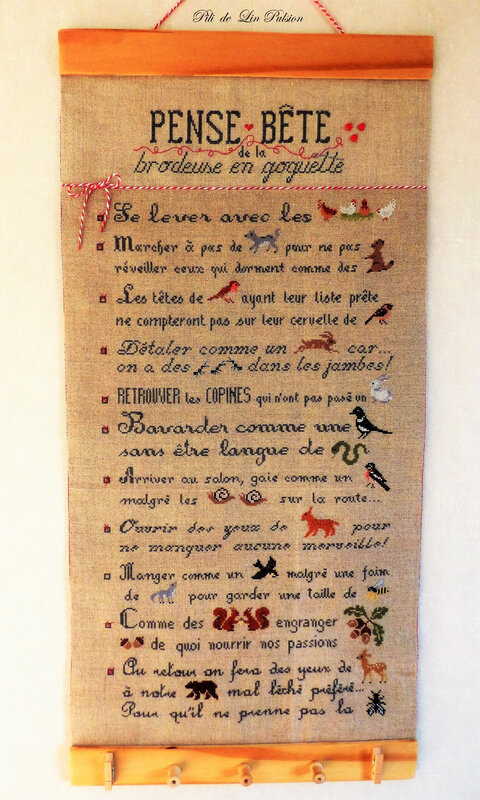 Pili de Lin Pulsion
PENSE BÊTE
de la
brodeuse en goguette
Se lever avec les
Marcher à pas de pour ne pas
réveiller ceux qui dorment comme des
Les têtes de ayant leur liste prête
ne compteront pas sur leur cervelle de
Détaler comme un car...
on a des dans les jambes!
RETROUVER les COPINES qui n'ont pas posé un
Bavarder comme une
sans être langue de
Arriver au salon, gaie comme un
malgré les sur la route...
Ouvrir des yeux de pour
ne manquer aucune merveille!
Manger comme un malgré une faim
de pour garder une taille de
Comme des engranger
de quoi nourrir nos passions
Au retour on fera des yeux de
à notre mal léché préféré...
Pour qu'il ne prenne pas la